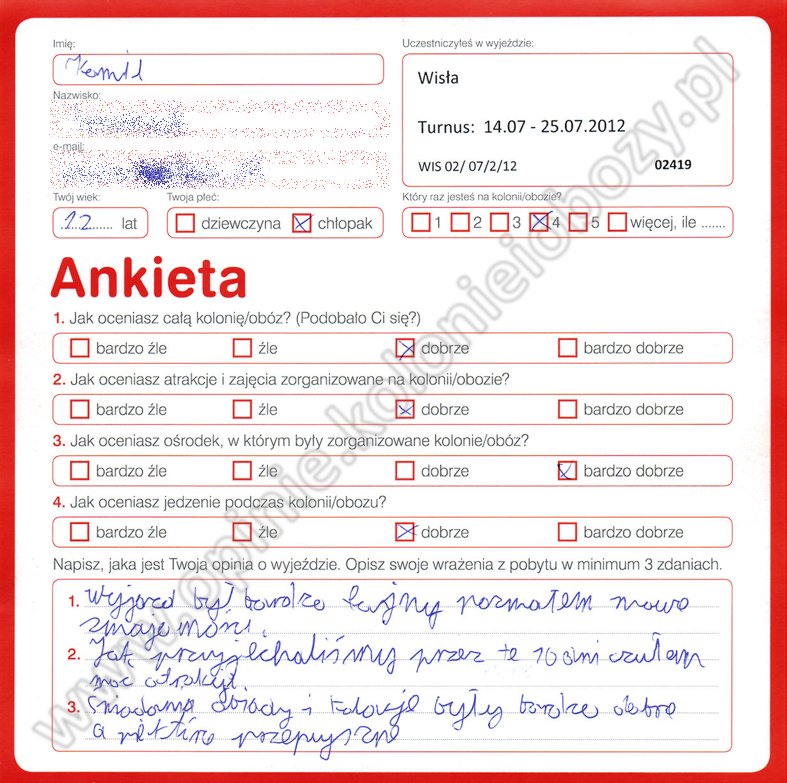 Imię:
Kamil
Uczestniczyłeś w wyjeździe:
Wisła
Turnus: 14.07 - 25.07.2012
WIS 02/ 07/2/12 02419
Nazwisko:
e-mail:
Twój wiek:
12 lat
Twoja płeć:
dziewczyna chłopak
Który raz jesteś na kolonii/obozie?
1 2 3 4 5 więcej, ile .......
Ankieta
1. Jak oceniasz całą kolonię/obóz? (Podobało Ci się?)
bardzo źle źle dobrze bardzo dobrze
2. Jak oceniasz atrakcje i zajęcia zorganizowane na kolonii/obozie?
bardzo źle źle dobrze bardzo dobrze
3. Jak oceniasz ośrodek, w którym były zorganizowane kolonie/obóz?
bardzo źle źle dobrze bardzo dobrze
4. Jak oceniasz jedzenie podczas kolonii/obozu?
bardzo źle źle dobrze bardzo dobrze
Napisz, jaka jest Twoja opinia o wyjeździe. Opisz swoje wrażenia z pobytu w minimum 3 zdaniach.
1. Wyjazd był bardzo fajny poznałem nowe
znajomości.
2. Jak przyjechaliśmy przez te 10 dni czułem
moc atrakcji
3. Śniadania obiady i kolacje były bardzo dobre
a przepyszne
www.opinie.kolonieiobozy.pl